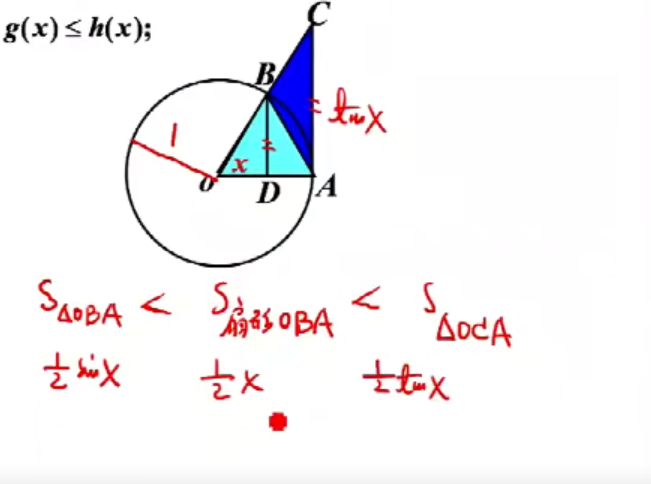 g(x) ≤ h(x);
C
B
= tan x
1
x
=
O
D
A
S△OBA < S扇形OBA < S△OCA
½ sin x ½ x ½ tan x